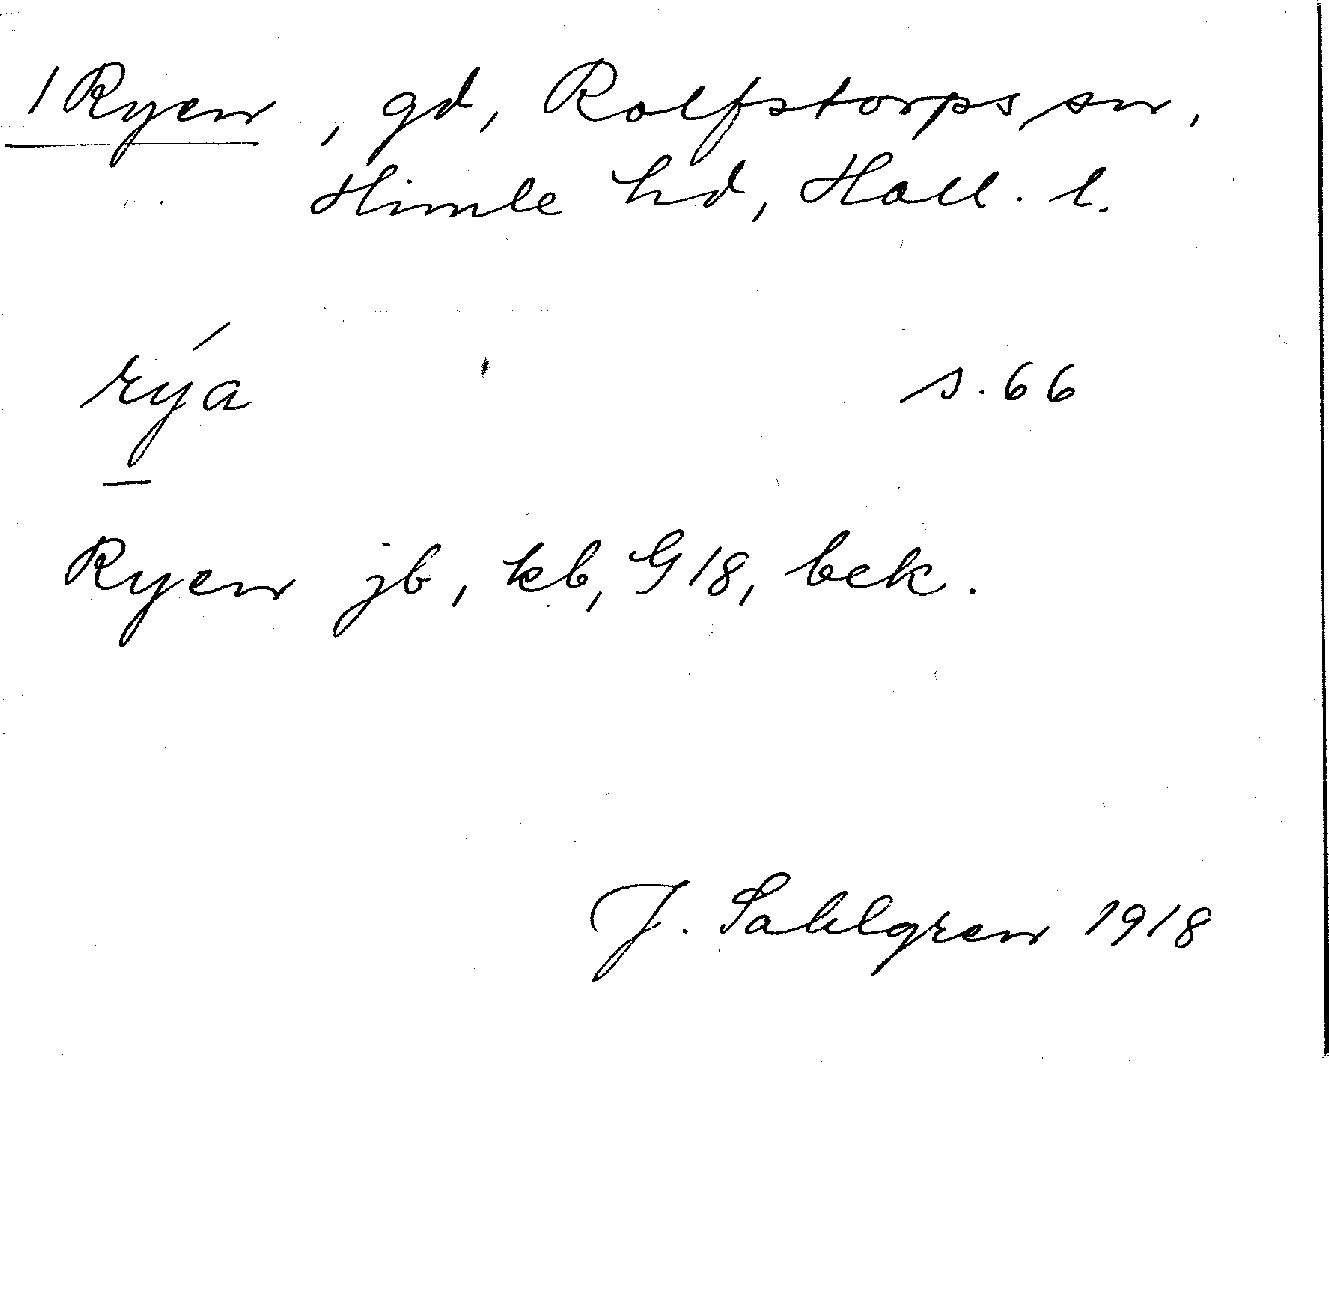 1 Ryen, gd, Rolfstorps sn,
Himle hd, Hall. l.
rýa s. 66
Ryen jb, kb, G 18, bek.
J. Sahlgren 1918